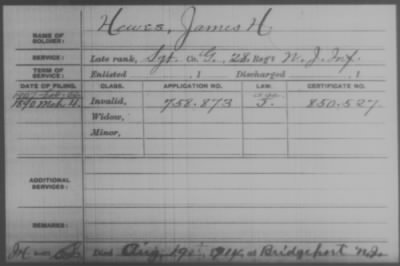 NAME OF SOLDIER: Hewes, James H
SERVICE: Late rank, Sgt. Co. G, 28 Reg't N.J. Inf.
TERM OF SERVICE: Enlisted , 1 Discharged , 1
DATE OF FILING. CLASS. APPLICATION NO. LAW. CERTIFICATE NO.
1890 Mch. 4. Invalid, 758.873 J. 850.527
Widow,
Minor,
ADDITIONAL SERVICES:
REMARKS:
Died Aug. 19" 1914, at Bridgeport N.J.